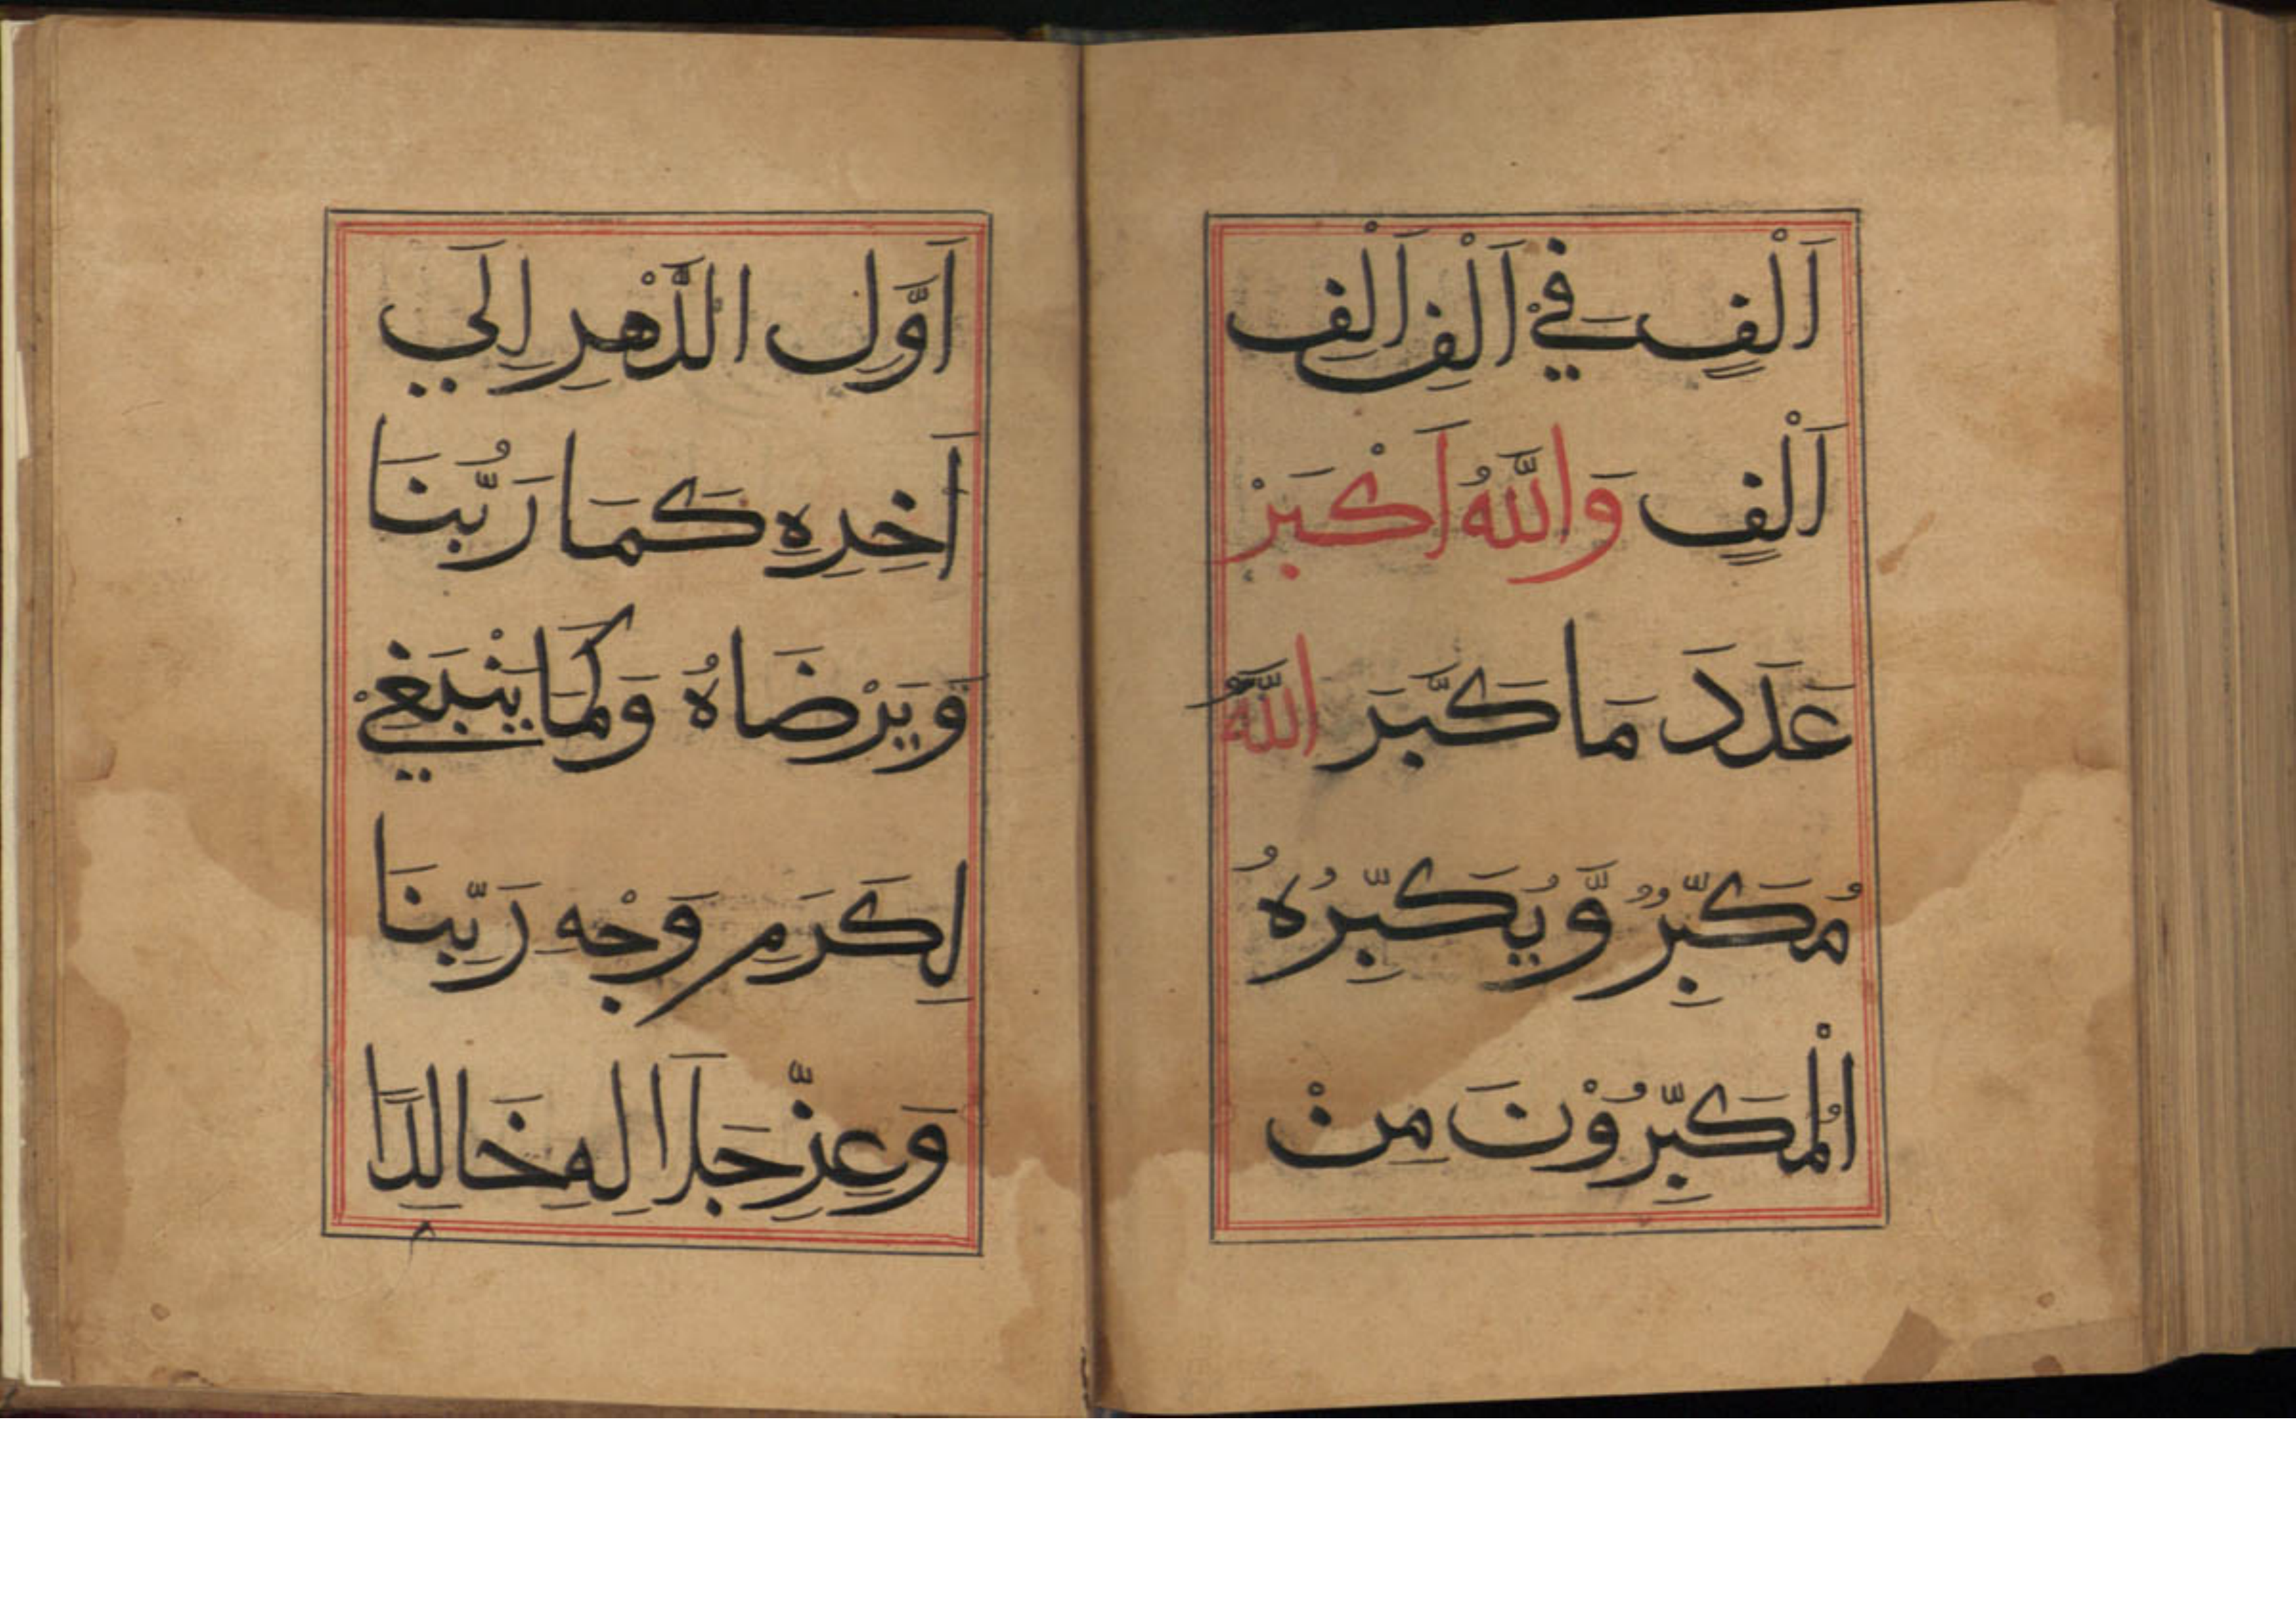 اَلْفٍ فِيْ اَلْفِ اَلْفِ
اَلْفٍ وَاللّٰهُ اَكْبَرْ
عَدَدَ مَا كَبَّرَ اللّٰهُ
مُكَبِّرٌ وَّيُكَبِّرُهُ
الْمُكَبِّرُوْنَ مِنْ
اَوَّلِ الدَّهْرِ اِلَي
اَخِرِهِ كَمَا رَبُّنَا
وَيَرْضَاهُ وَكَمَا يَنْبَغِيْ
لِكَرَمِ وَجْهِ رَبِّنَا
وَعِزِّ جَلَا لِهِ خَالِدًا